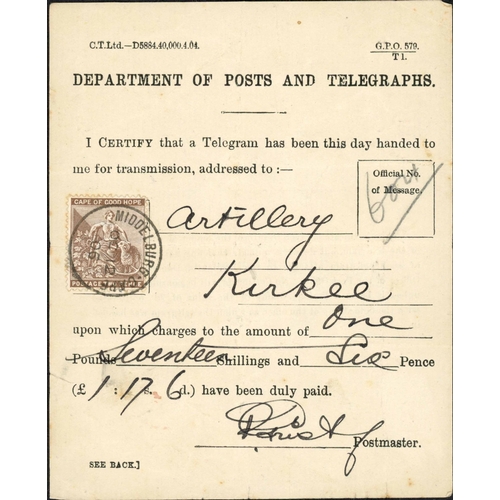 C.T.Ltd.—D5884.40,000.4.04.
G.P.O. 579.
T1.
DEPARTMENT OF POSTS AND TELEGRAPHS.
I CERTIFY that a Telegram has been this day handed to
me for transmission, addressed to :—
Official No.
of Message.
CAPE OF GOOD HOPE
MIDDELBURG
POSTAGE
Artillery
Kirkee
upon which charges to the amount of One
Pounds Seventeen Shillings and Six Pence
(£ 1 : 17 s. 6 d.) have been duly paid.
Postmaster.
SEE BACK.]